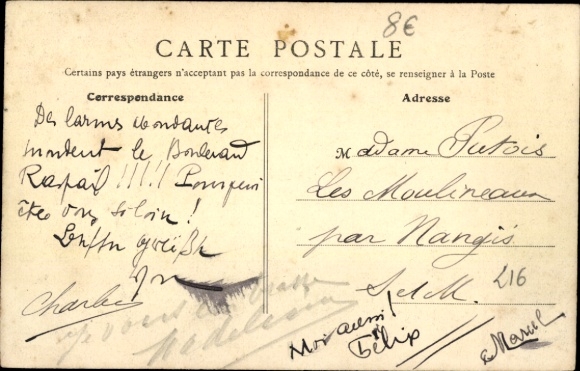 8€
CARTE POSTALE
Certains pays étrangers n'acceptant pas la correspondance de ce côté, se renseigner à la Poste
Correspondance
Des larmes abondantes
inondent le Boulevard
Raspail!!!!! Pourquoi
êtes vous si loin!
Charles
Je vous embrasse
Madeleine
Adresse
Madame Putois
Les Moulineaux
par Nangis
S et M.
216
Moi aussi!
Félix